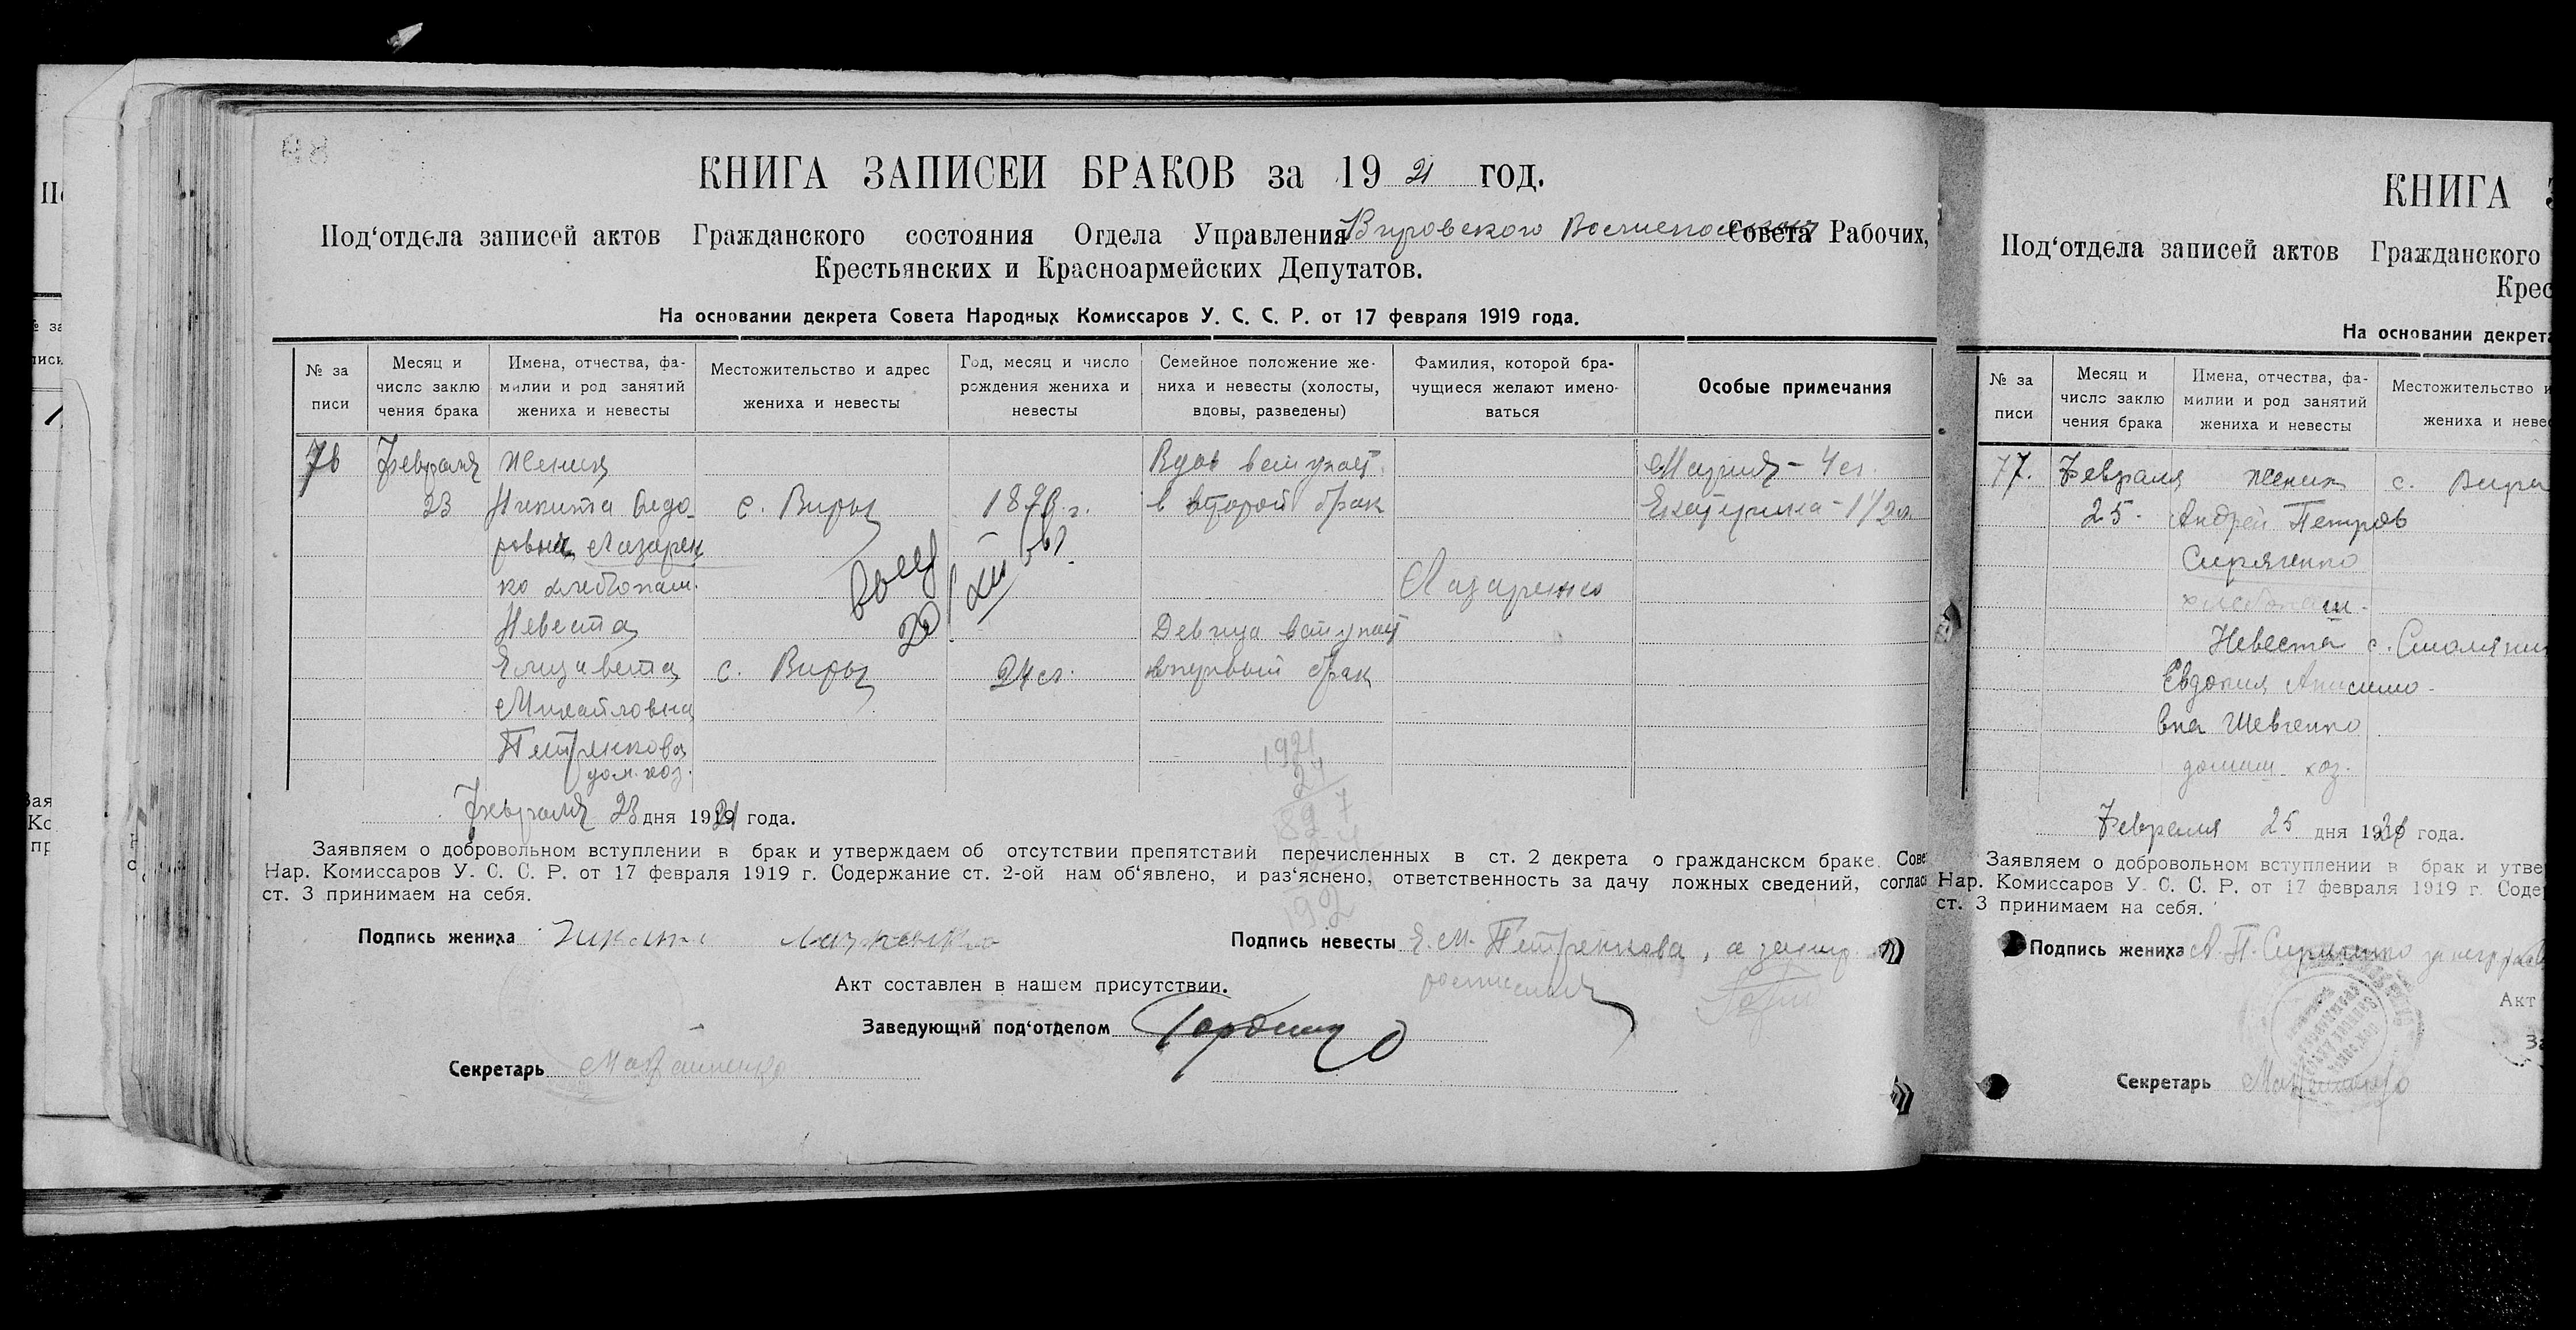 КНИГА ЗАПИСЕЙ БРАКОВ за 1921 год.
Под‘отдела записей актов Гражданского состояния Отдела Управления Вировского Совета Рабочих,
Крестьянских и Красноармейских Депутатов.
На основании декрета Совета Народных Комиссаров У. С. С. Р. от 17 февраля 1919 года.
№ за писи
Месяц и число заклю чения брака
Имена, отчества, фа- милии и род занятий жениха и невесты
Местожительство и адрес жениха и невесты
Год, месяц и число рождения жениха и невесты
Семейное положение же- ниха и невесты (холосты, вдовы, разведены)
Фамилия, которой бра- чущиеся желают имено- ваться
Особые примечания
76 Февраля Жених Вдов вступает Мария - 4 л.
23 Никита Федо- с. Виры в второй брак Екатерина - 1 1/2 л.
рович Лазарен
ко хлебопаш. Лазаренко
20/XII
Невеста Девица вступает
Елизавета с. Виры 24 л. в первый брак
Михайловна
Петренкова
дом. хоз.
1921
24
Февраля 23 дня 1921 года.
Заявляем о добровольном вступлении в брак и утверждаем об отсутствии препятствий перечисленных в ст. 2 декрета о гражданском браке. Сове
Нар. Комиссаров У. С. С. Р. от 17 февраля 1919 г. Содержание ст. 2-ой нам об‘явлено, и раз‘яснено, ответственность за дачу ложных сведений, соглас
ст. 3 принимаем на себя.
Подпись жениха Никита Лазаренко
Подпись невесты Е. М. Петренкова, а за
Акт составлен в нашем присутствии.
Заведующий под‘отделом
Секретарь
КНИГА З
Под‘отдела записей актов Гражданского
Крес
На основании декрета
№ за писи
Месяц и число заклю чения брака
Имена, отчества, фа- милии и род занятий жениха и невесты
Местожительство и жениха и невес
77. Февраля Жених с. Виры
25. Андрей Петров
Сиряченко
Невеста с.
Евдокия Анисимо-
вна Шевченко
домаш. хоз.
Февраля 25 дня 1921 года.
Заявляем о добровольном вступлении в брак и утве
Нар. Комиссаров У. С. С. Р. от 17 февраля 1919 г. Соде
ст. 3 принимаем на себя.
Подпись жениха А. П. Сиряченко
Акт
За
Секретарь